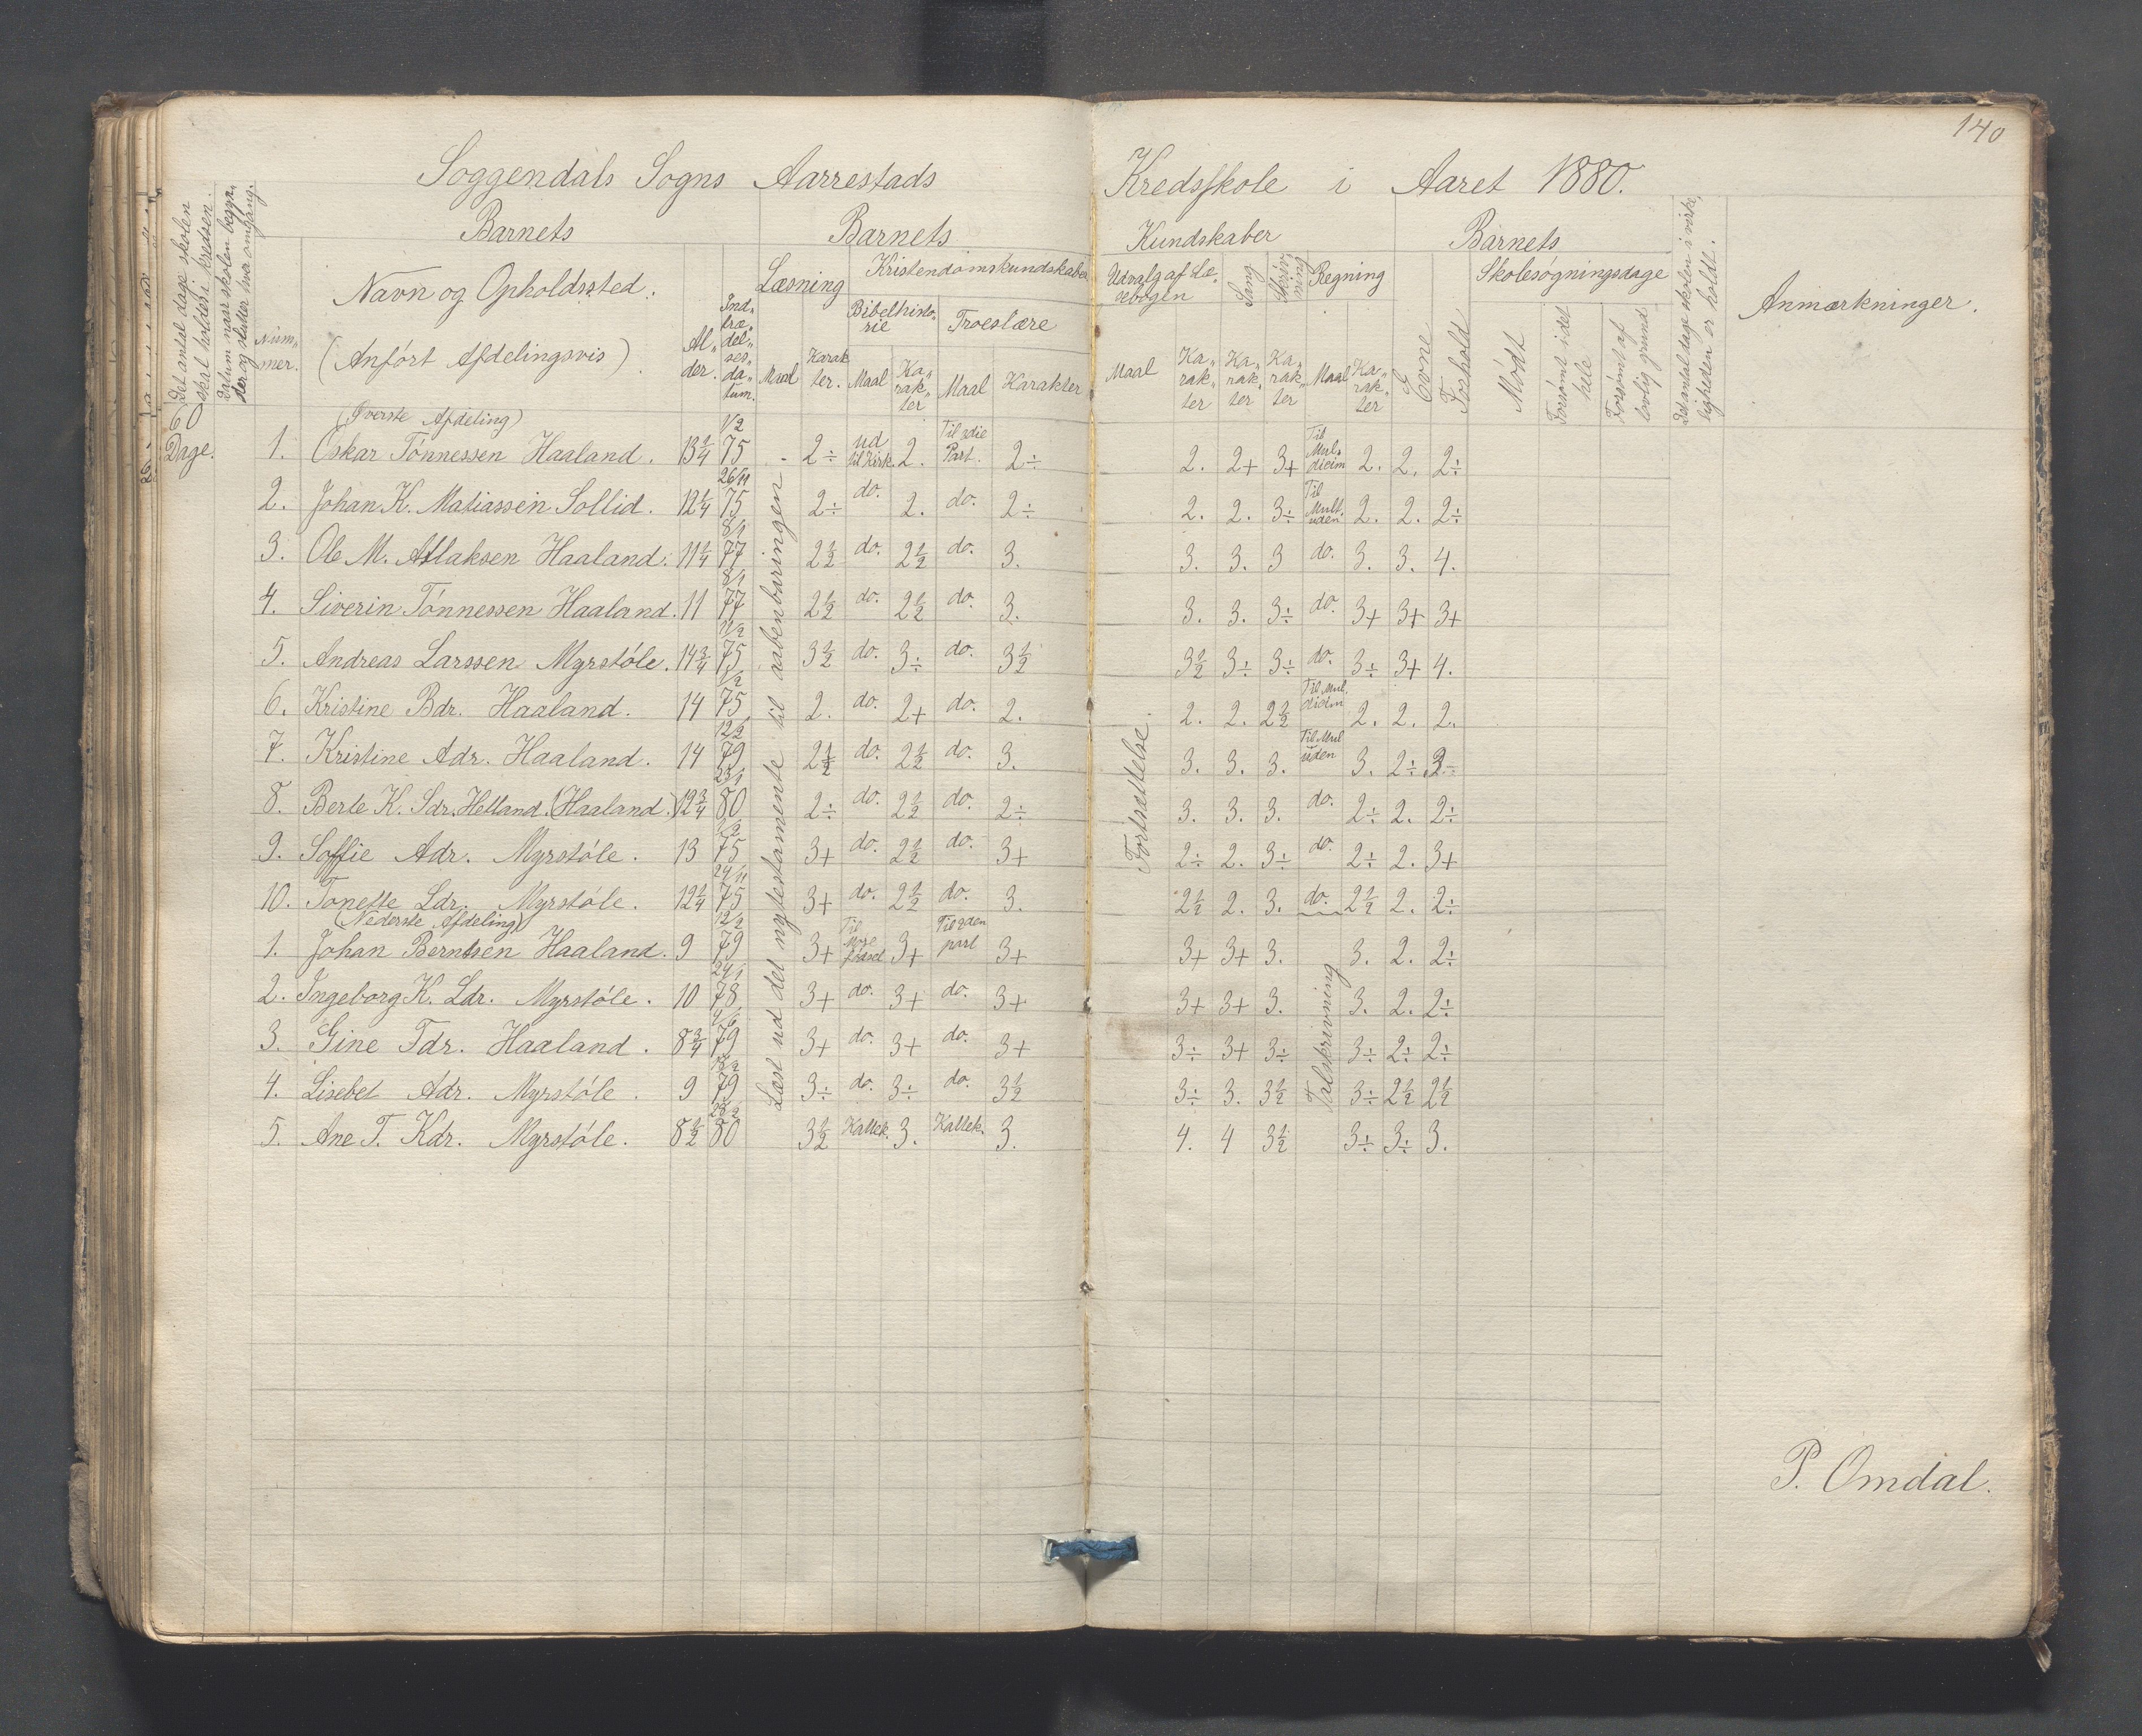 140
Soggendals Sogns Aarrestads Kredsskole i Aaret 1880.
Det antal dage skolen skal holdes i kredsen.
Datum naar skolen begyn„der og slutter hver omgang.
Barnets
Num„mer.
Navn og Opholdssted.
(Anført Afdelingsvis)
Al„der.
Ind„træ„del„ses„da„tum.
Barnets Kundskaber
Læsning
Maal
Karakter.
Kristendomskundskaber
Bibelhisto„rie
Maal
Ka„rak„ter
Troeslære
Maal
Karakter
Udvalg af Læ„sebogen
Maal
Ka„rak„ter
Sang
Ka„rak„ter
Skrivning
Ka„rak„ter
Regning
Maal
Ka„rak„ter
Barnets
Evne
Forhold
Skolesøgningsdage
Mødt
Forsømt i det hele
Forsømt af lovlig grund
Det antal dage skolen i virke„ligheden er holdt.
Anmærkninger.
60 Dage.
(Øverste Afdeling)
1. Oskar Tønnessen Haaland. 13 1/4 1/2 75 - 2÷ ud til Kirk. 2. Til 3die Part. 2÷ 2. 2+ 3+ Til Mul. dicim 2. 2. 2÷
2. Johan K. Matiassen Sollid. 12 1/4 26/11 75 2÷ do. 2. do. 2÷ 2. 2. 3÷ Til Mult. uden. 2. 2. 2÷
3. Ole M. Atlaksen Haaland. 11 1/4 8/1 77 2 1/2 do. 2 1/2 do. 3. 3. 3. 3 do. 3. 3. 4.
4. Siverin Tønnessen Haaland. 11 8/1 77 2 1/2 do. 2 1/2 do. 3. 3. 3. 3÷ do. 3+ 3+ 3+
5. Andreas Larssen Myrstøle. 14 3/4 11/2 75 3 1/2 do. 3÷ do. 3 1/2 3 1/2 3÷ 3÷ do. 3÷ 3+ 4.
6. Kristine Bdr. Haaland. 14 1/2 75 2. do. 2+ do. 2. 2. 2. 2 1/2 Til Mul. 2. 2. 2.
7. Kristine Adr. Haaland. 14 12/2 79 2 1/2 do. 2 1/2 do. 3. 3. 3. 3. Til Mul uden 3. 2÷
8. Berte K. Sdr. Helland. (Haaland.) 12 3/4 23/1 80 2÷ do. 2 1/2 do. 2÷ 3. 3. 3. do. 2÷ 2. 2÷
9. Soffie Adr. Myrstøle. 13 1/2 75 3+ do. 2 1/2 do. 3+ 2÷ 2. 3÷ do. 2÷ 2. 3+
10. Tonette Ldr. Myrstøle. 12 1/4 24/11 75 3+ do. 2 1/2 do. 3. 2 1/2 2. 3. do. 2 1/2 2. 2÷
(Nederste Afdeling)
1. Johan Berntsen Haaland. 9 12/2 79 3+ Til 3+ Til 2den part 3+ 3+ 3+ 3. 3. 2. 2÷
2. Ingeborg K. Ldr. Myrstøle. 10 24/1 78 3+ do. 3+ do. 3+ 3+ 3+ 3. 3. 2. 2÷
3. Gine Tdr. Haaland. 8 3/4 79 3+ do. 3+ do. 3+ 3÷ 3+ 3÷ 3÷ 2÷ 2÷
4. Lisebet Adr. Myrstøle. 9 79 3÷ do. 3÷ do. 3 1/2 3÷ 3. 3 1/2 3÷ 2 1/2 2 1/2
5. Ane T. Kdr. Myrstøle. 8 1/2 80 3 1/2 Katek. 3. Katek. 3. 4. 4 3 1/2 3÷ 3÷ 3.
Læst ud det nytestamente til aabenbaringen
Fortsættelse
Talskrivning
P. Omdal.